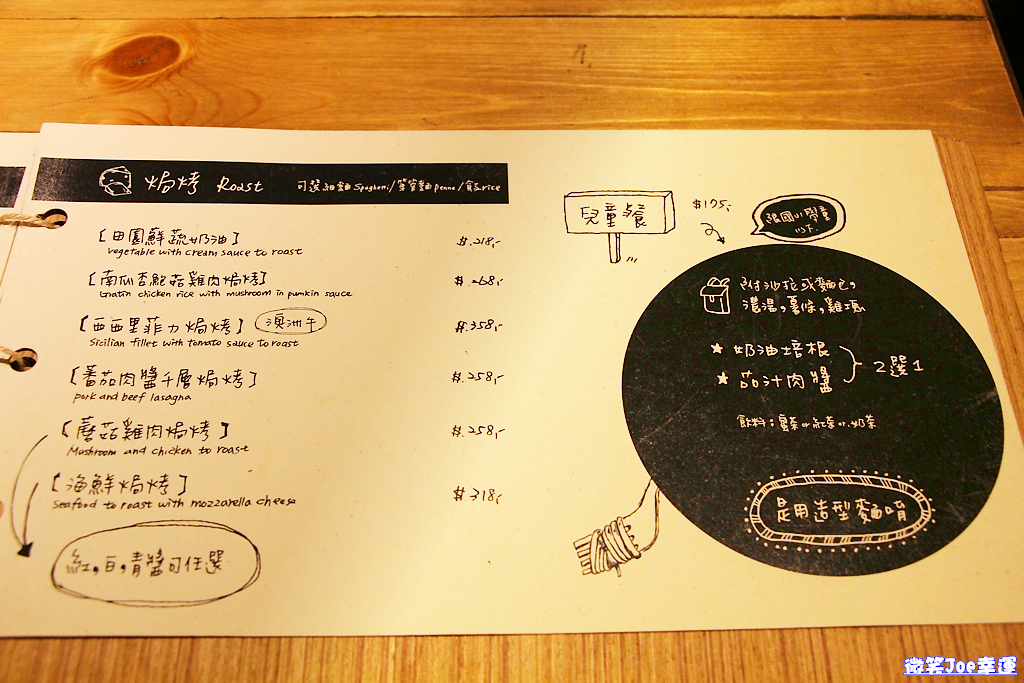 焗烤 Roast 可選細麵 Spaghetti/筆管麵 penne/飯 rice
[田園鮮蔬奶油] $.218,-
vegetable with cream sauce to roast
[南瓜杏鮑菇雞肉焗烤] $.268,-
Gratin chicken rice with mushroom in pumkin sauce
[西西里菲力焗烤] 澳洲牛 $.358,-
Sicilian fillet with tomato sauce to roast
[蕃茄肉醬千層焗烤] $.258,-
pork and beef lasagna
[蘑菇雞肉焗烤] $.258,-
Mushroom and chicken to roast
[海鮮焗烤] $.318,-
Seafood to roast with mozzarella cheese
紅,白,青醬可任選
兒童餐 $175,-
限國小學童
以下.
附沙拉或麵包,
濃湯,薯條,雞塊
★ 奶油培根
★ 茄汁肉醬
2選1
飲料: or 紅茶 or 奶茶
是用造型麵唷
微笑Joe幸運